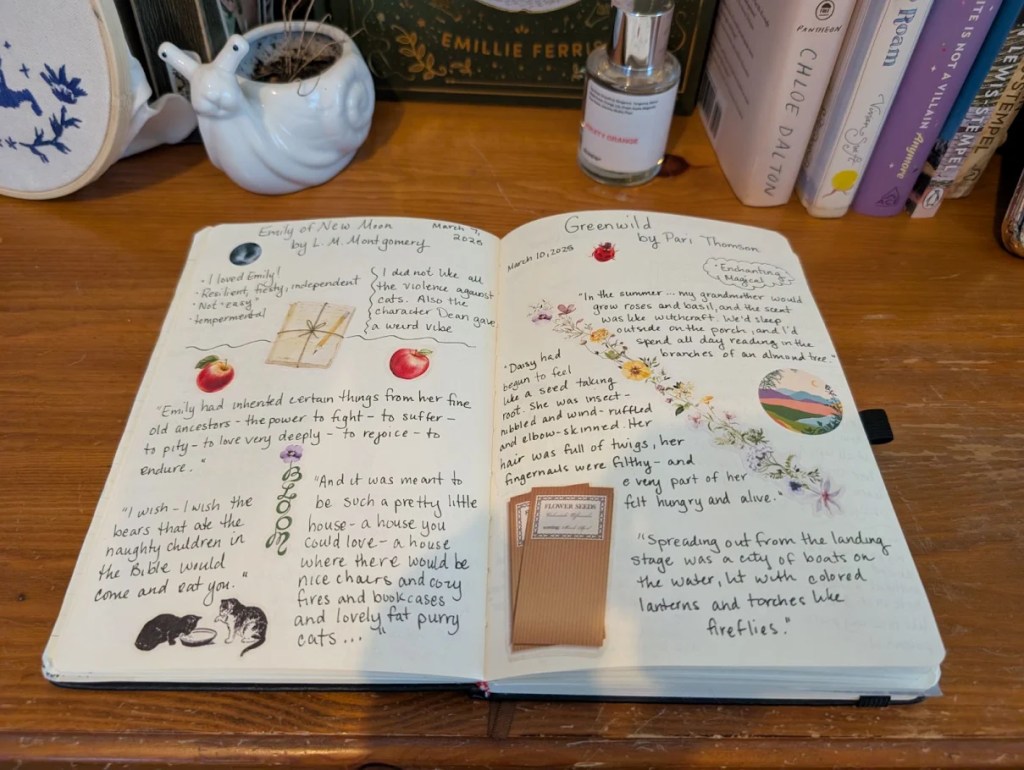 EMILLIE FERRIS
FRUITY ORANGE
PANTHEON
CHLOE DALTON
Roam
ITE IS NOT A VILLAIN Anymore
LEWIS-STEMPEL
STEMPEL
Emily of New Moon
by L. M. Montgomery
March 9,
2025
• I loved Emily!
• Resilient, fiesty, independent
• Not "easy"
• tempermental
I did not like all
the violence against
cats. Also the
character Dean gave
a weird vibe
"Emily had inherited certain things from her fine
old ancestors - the power to fight - to suffer -
to pity - to love very deeply - to rejoice - to
endure."
BLOOM
"I wish - I wish the
bears that ate the
naughty children in
the Bible would
come and eat you."
"And it was meant to
be such a pretty little
house - a house you
could love - a house
where there would be
nice chairs and cozy
fires and bookcases
and lovely fat purry
cats..."
Greenwild
by Pari Thomson
March 10, 2025
• Enchanting
Magical
"In the summer... my grandmother would
grow roses and basil, and the scent
was like witchcraft. We'd sleep
outside on the porch, and I'd
spend all day reading in the
branches of an almond tree."
"Daisy had
begun to feel
like a seed taking
root. She was insect-
nibbled and wind-ruffled
and elbow-skinned. Her
hair was full of twigs, her
fingernails were filthy - and
every part of her
felt hungry and alive."
FLOWER SEEDS
"Spreading out from the landing
stage was a city of boats on
the water, lit with colored
lanterns and torches like
fireflies."